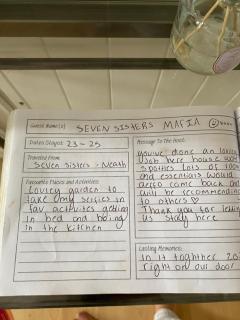 Guest Name(s) SEVEN SISTERS MAFIA
Dates Stayed: 23 - 25
Traveled From:
Seven Sisters, Neath
Favourite Places and Activities:
Lovley garden to
take only selfies in
fav activites getting
in bed and being
in the kitchen
Message To The Host:
youve done an
Job here house was
spotles lots of
and essentials would
come back and
will be recommending
to others
Thank you for letting
us stay here
Lasting Memories:
In it together 20
right on our door